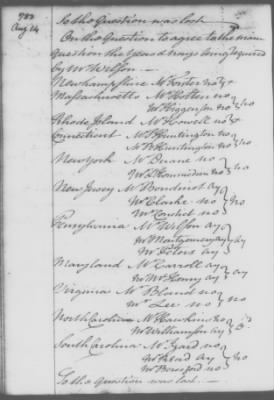 1783
Aug 14
So the Question was lost
On the Question to agree to the main
question the yeas & nays being required
by Mr Wilson —
New hampshire Mr Foster no } +
Massachusetts Mr Holten no } no
Mr Higginson no
Rhode Island Mr Howell no } +
Connecticut Mr S Huntington no } no
Mr B Huntington no
New York Mr Duane no } no
Mr L'Hommedieu no
New Jersey Mr Boudinot ay } no
Mr Clarke no
Mr Condict no
Pensylvania Mr Wilson ay } ay
Mr Montgomery ay
Mr Peters ay
Maryland Mr Carroll ay } ay
Mr McHenry ay
Virginia Mr Bland no } no
Mr Lee no
North Carolina Mr Hawkins no } d
Mr Williamson ay
South Carolina Mr Izard no } no
Mr Read ay
Mr Beresford no
So the question was lost —